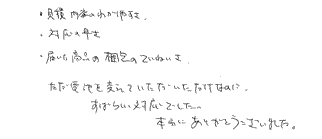 ・見積内容のわかりやすさ、
・対応の早さ
・届いた商品の梱包のていねいさ、
ただ受注を変えていただいただけなのに、
すばらしい対応でした。
本当にありがとうございました。